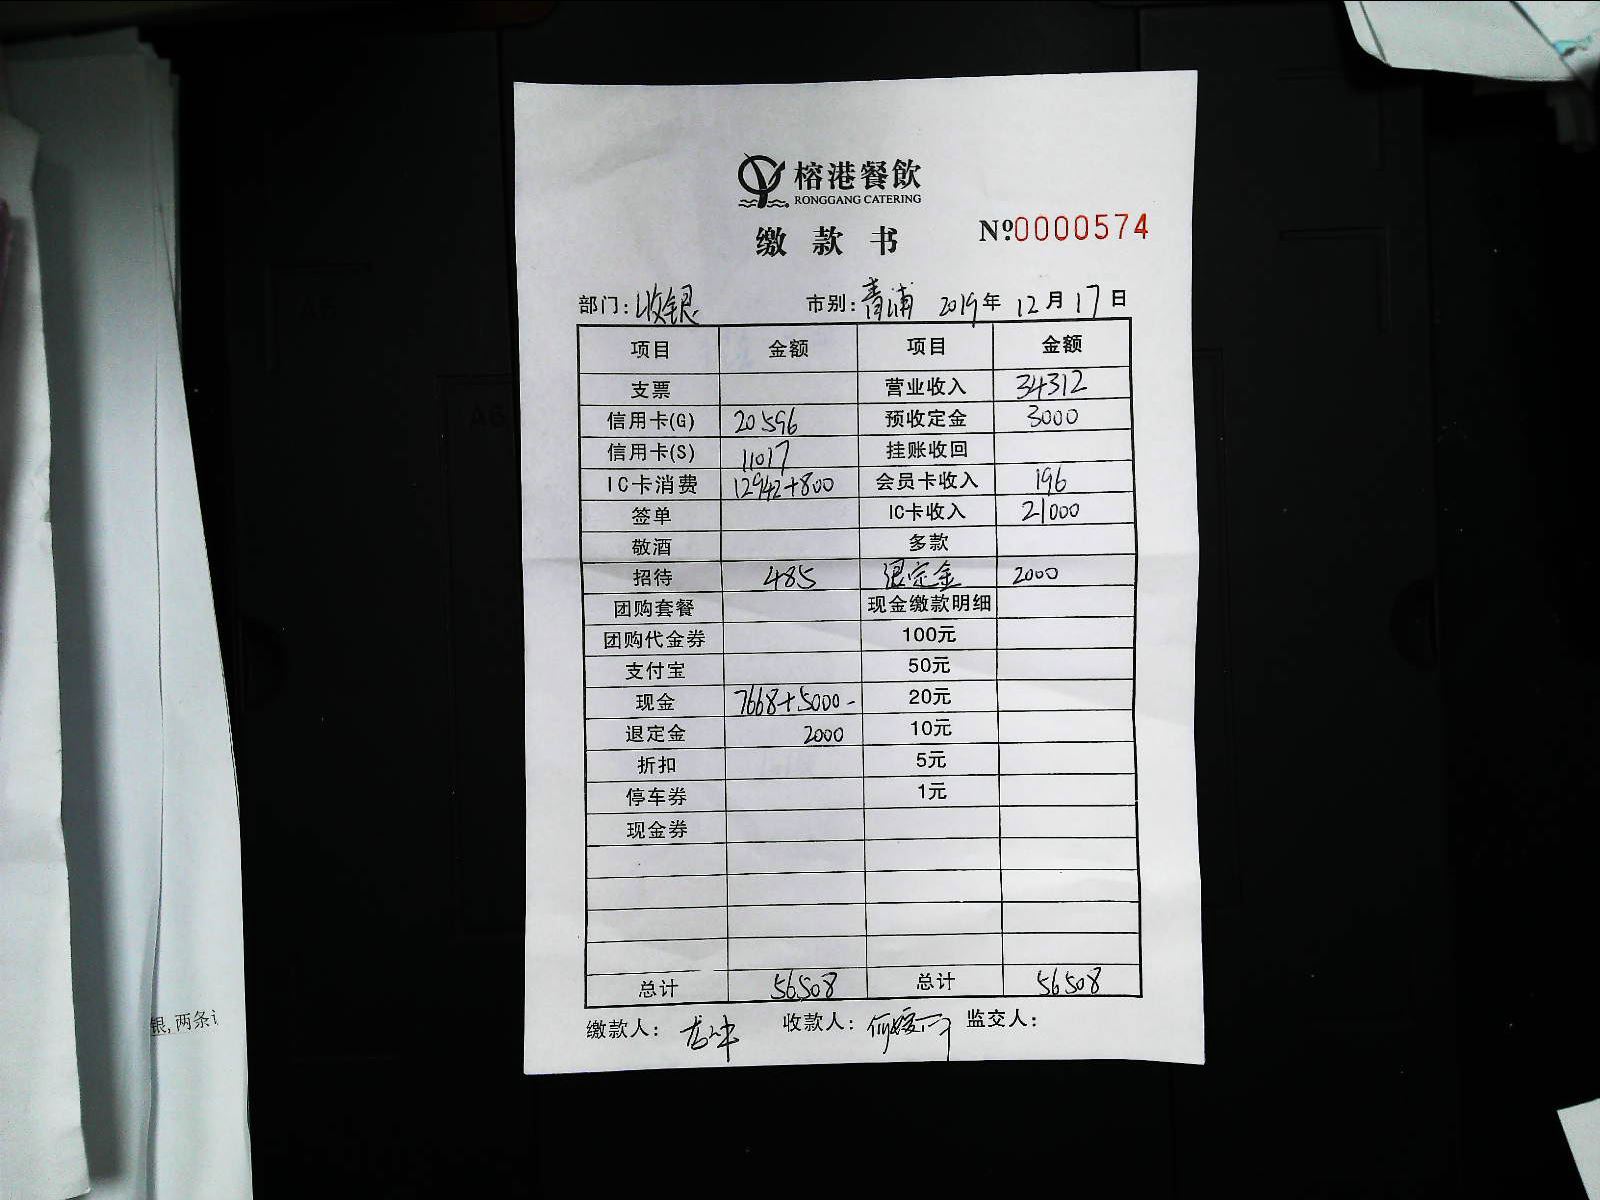 榕港餐飲
RONGGANG CATERING
缴款书 Nº0000574
部门:收银 市别:青浦 2019年12月17日
项目 金额 项目 金额
支票 营业收入 34312
信用卡(G) 20596 预收定金 3000
信用卡(S) 11017 挂账收回
IC卡消费 12942+800 会员卡收入 196
签单 IC卡收入 21000
敬酒 多款
招待 485 退定金 2000
团购套餐 现金缴款明细
团购代金券 100元
支付宝 50元
现金 7668+5000- 20元
退定金 2000 10元
折扣 5元
停车券 1元
现金券
总计 56508 总计 56508
缴款人: 收款人: 监交人:
银,两条